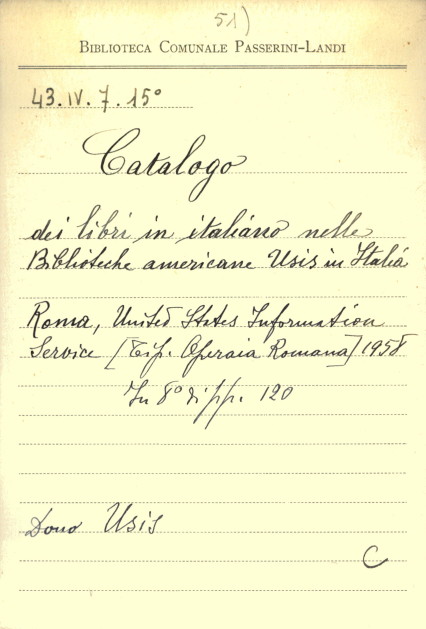 51)
BIBLIOTECA COMUNALE PASSERINI-LANDI
43.IV.7.15°
Catalogo
dei libri in italiano nelle
Biblioteche americane Usis in Italia
Roma, United States Information
Service [Tip. Operaia Romana] 1958
In 8° di pp. 120
Dono Usis
C